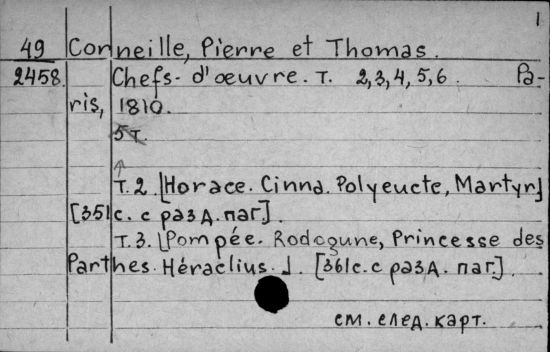 1
49 Corneille, Pierre et Thomas.
2458 Chefs-d'œuvre. т. 2,3,4,5,6. Pa-
ris, 1810.
5 т.
т. 2. [Horace. Cinna. Polyeucte, Martyr]
[351 с. с разд. паг].
т. 3. [Pompée. Rodogune, Princesse des
Parthes. Héraclius.]. [361 с. с разд. паг.].
см. след. карт.